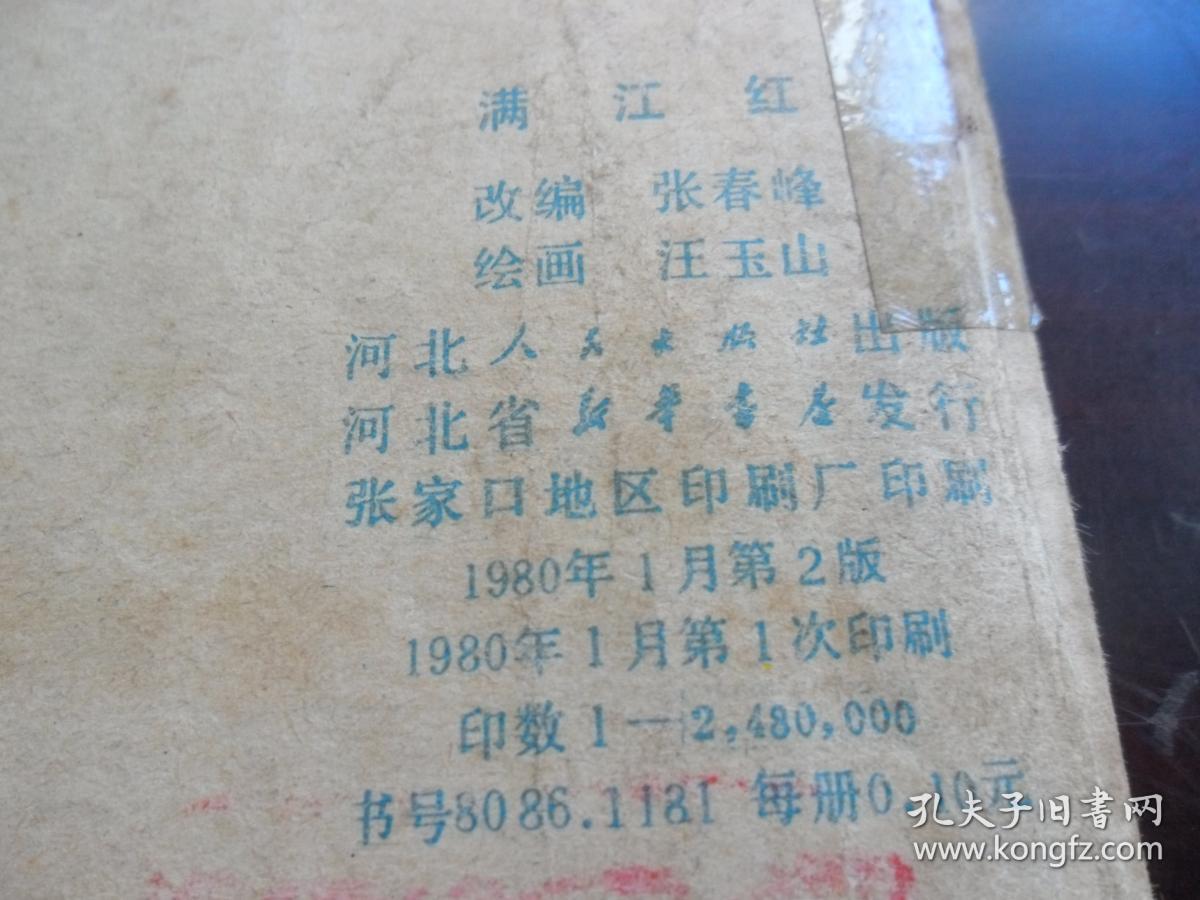 满江红
改编 张春峰
绘画 汪玉山
河北人民出版社出版
河北省新华书店发行
张家口地区印刷厂印刷
1980年1月第2版
1980年1月第1次印刷
印数1—2,480,000
书号8086.1181 每册0.10元
孔夫子旧書网
www.kongfz.com